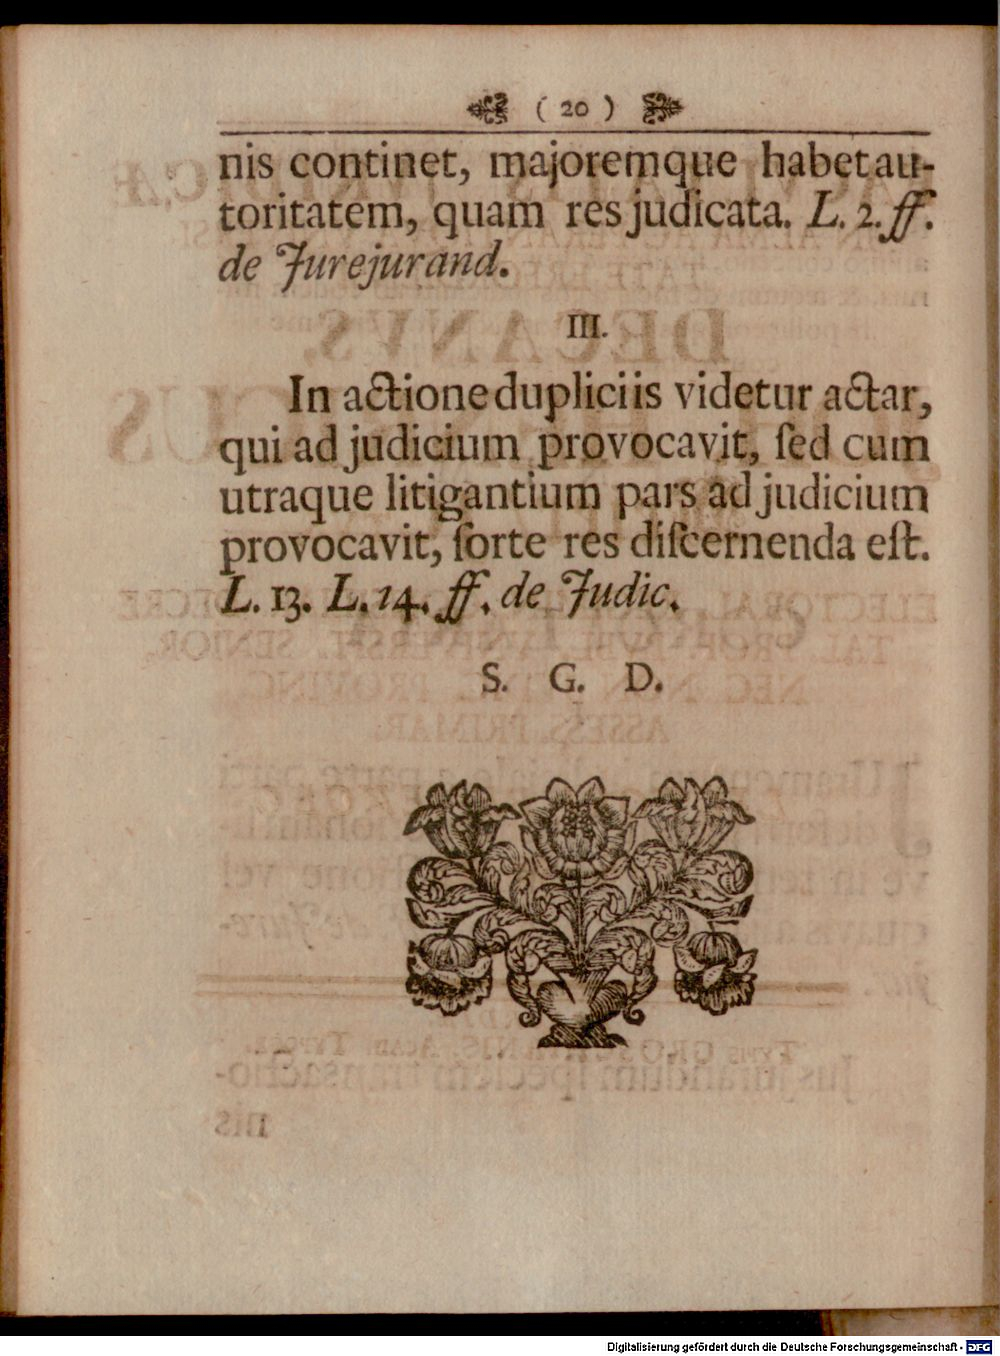 ( 20 )
nis continet, majoremque habet au-
toritatem, quam res judicata. L. 2. ff.
de Jurejurand.
III.
In actione duplici is videtur actar,
qui ad judicium provocavit, ſed cum
utraque litigantium pars ad judicium
provocavit, ſorte res diſcernenda eſt.
L. 13. L. 14. ff. de Judic.
S. G. D.
Digitalisierung gefördert durch die Deutsche Forschungsgemeinschaft - DFG